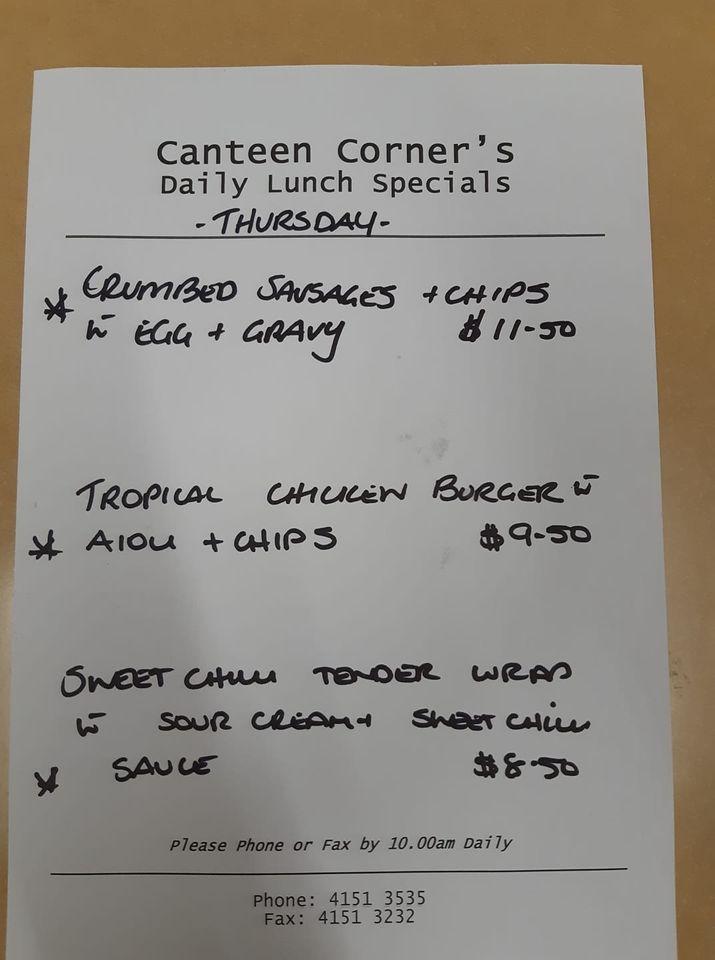 Canteen Corner's
Daily Lunch Specials
- THURSDAY -
* CRUMBED SAUSAGES + CHIPS
w̄ EGG + GRAVY $11-50
TROPICAL CHICKEN BURGER w̄
* AIOLI + CHIPS $9-50
SWEET CHILLI TENDER WRAP
w̄ SOUR CREAM + SWEET CHILLI
* SAUCE $8.50
Please Phone or Fax by 10.00am Daily
Phone: 4151 3535
Fax: 4151 3232